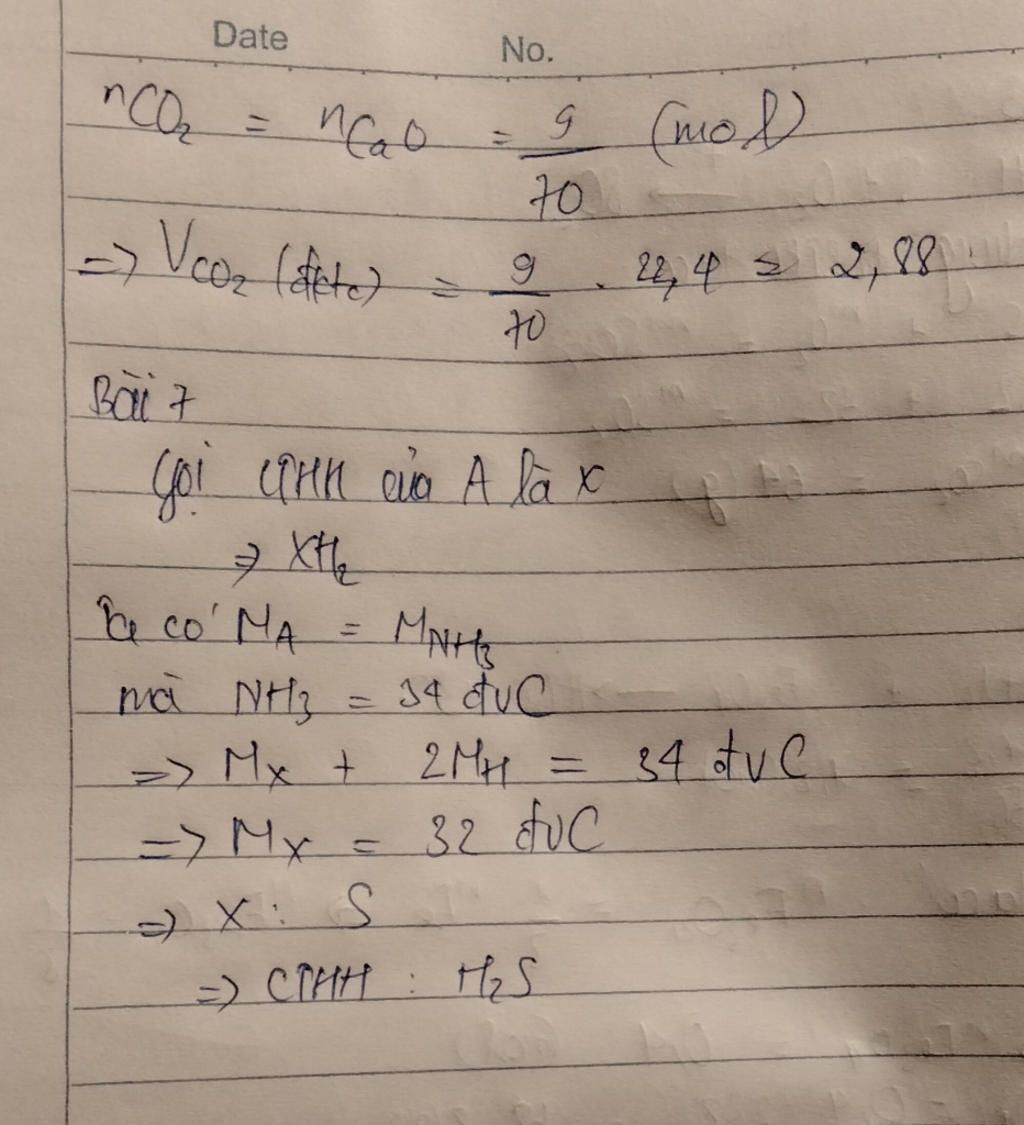 Date No.
nCO₂ = nCaO = 9/70 (mol)
=> VCO₂ (đktc) = 9/70 . 22,4 = 2,88
Bài 7
Gọi CTHH của A là X
=> XH₂
Ta có MA = MNH₃
mà NH₃ = 34 đvC
=> MX + 2MH = 34 đvC
=> MX = 32 đvC
=> X : S
=> CTHH : H₂S